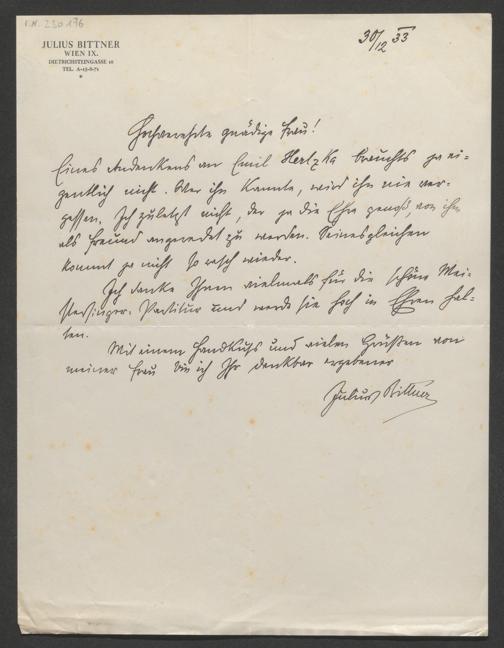 I.N. 230176
JULIUS BITTNER
WIEN IX.
DIETRICHSTEINGASSE 10
TEL. A-15-8-71
30/12 33
Hochverehrte gnädige Frau!
Eines Andenkens an Emil Hertzka brauchts ja ei-
gentlich nicht. Wer ihn kannte, wird ihn nie ver-
gessen. Ich zuletzt nicht, der ja die Ehre genoß, von ihm
als Freund angeredet zu werden. Seinesgleichen
kommt ja nicht so rasch wieder.
Ich danke Ihnen vielmals für die schöne Mei-
stersinger-Partitur und werde sie hoch in Ehren hal-
ten.
Mit einem Handkuß und vielen Grüßen von
meiner Frau bin ich Ihr dankbar ergebener
Julius Bittner